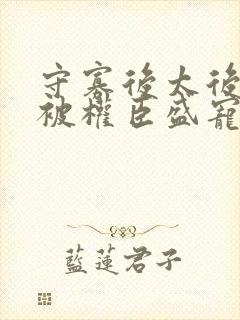 守寡後太後
被權臣盛寵
藍蓮君子